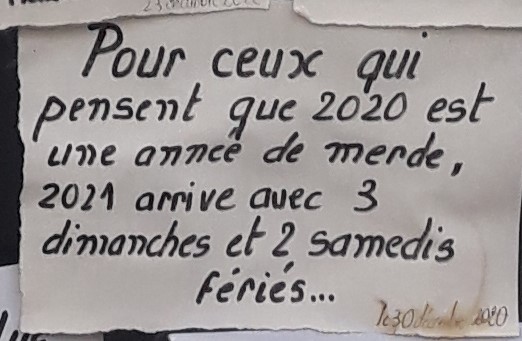 23 décembre 2020
Pour ceux qui
pensent que 2020 est
une année de merde,
2021 arrive avec 3
dimanches et 2 samedis
fériés...
le 30 décembre 2020